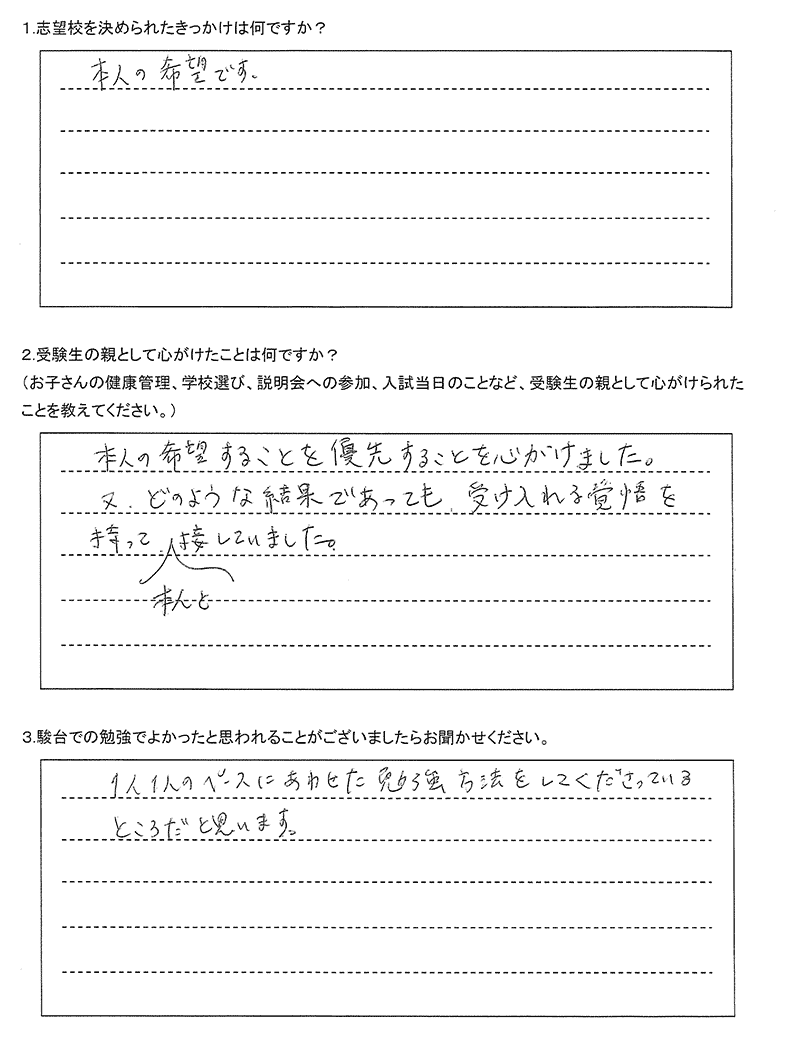 1.志望校を決められたきっかけは何ですか？
本人の希望です。
2.受験生の親として心がけたことは何ですか？
（お子さんの健康管理、学校選び、説明会への参加、入試当日のことなど、受験生の親として心がけられた
ことを教えてください。）
本人の希望することを優先することを心がけました。
又、どのような結果であっても、受け入れる覚悟を
持って、接していました。
本人と
3.駿台での勉強でよかったと思われることがございましたらお聞かせください。
1人1人のペースにあわせた勉強方法をしてくださっている
ところだと思います。